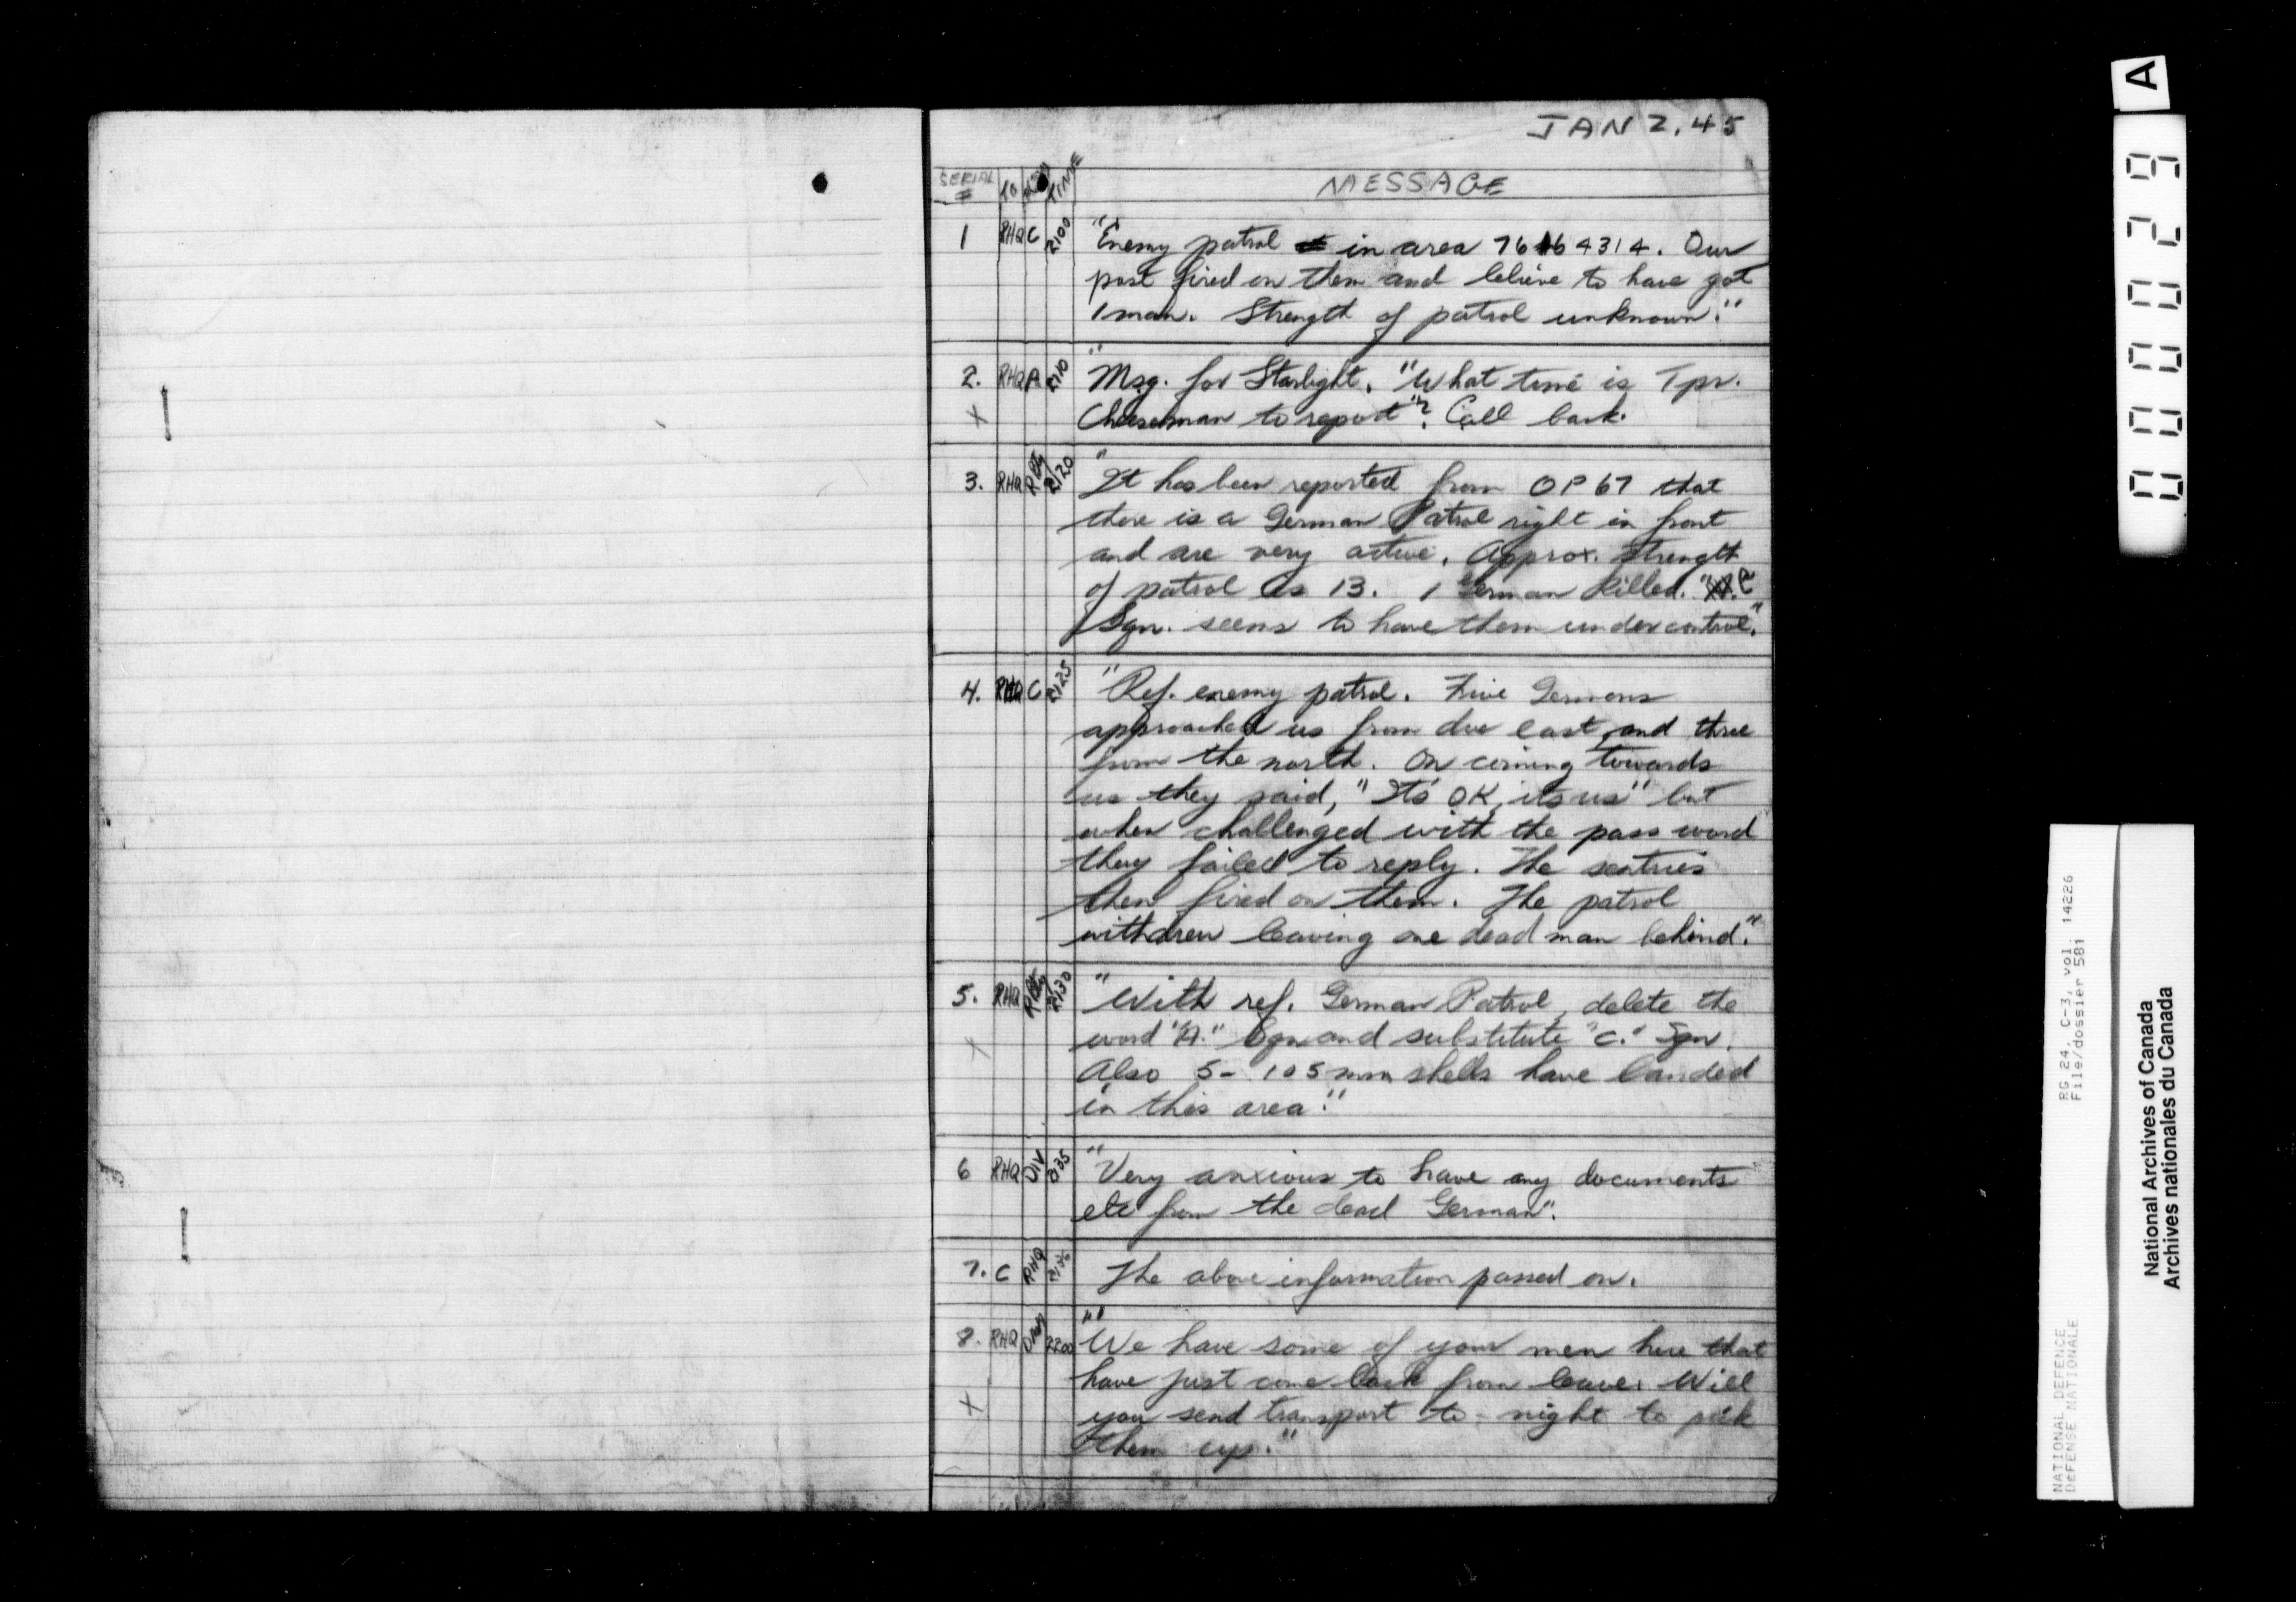 JAN 2, 45
SERIAL # TO FROM TIME MESSAGE
1 RHQ C 2100 "Enemy patrol in area 76164314. Our
post fired on them and believe to have got
1 man. Strength of patrol unknown."
2. RHQ A 2110 "Msg. for Starlight. "What time is Tpr.
Cheeseman to report"? Call back.
X
3. RHQ 2120 "It has been reported from OP 67 that
there is a German Patrol right in front
and are very active. Approx. strength
of patrol is 13. 1 German killed. "C
Sqn. seems to have them under control."
4. RHQ C 2125 "Ref. enemy patrol. Five Germans
approached us from due east, and three
from the north. On coming towards
us they said, "It's OK, its us" but
when challenged with the pass word
they failed to reply. The sentries
then fired on them. The patrol
withdrew leaving one dead man behind."
5. RHQ 2130 "With ref. German Patrol, delete the
word "A." Sqn and substitute "C." Sqn.
X
Also 5 - 105 mm shells have landed
in this area."
6 RHQ DIV "Very anxious to have any documents
etc from the dead German".
7. C RHQ The above information passed on.
8. RHQ 2200 "We have some of your men here that
have just come back from leave. Will
X
you send transport to-night to pick
them up."
A
000029
NATIONAL DEFENCE RG 24, C-3, vol. 14226
DÉFENSE NATIONALE File/dossier 581
National Archives of Canada
Archives nationales du Canada